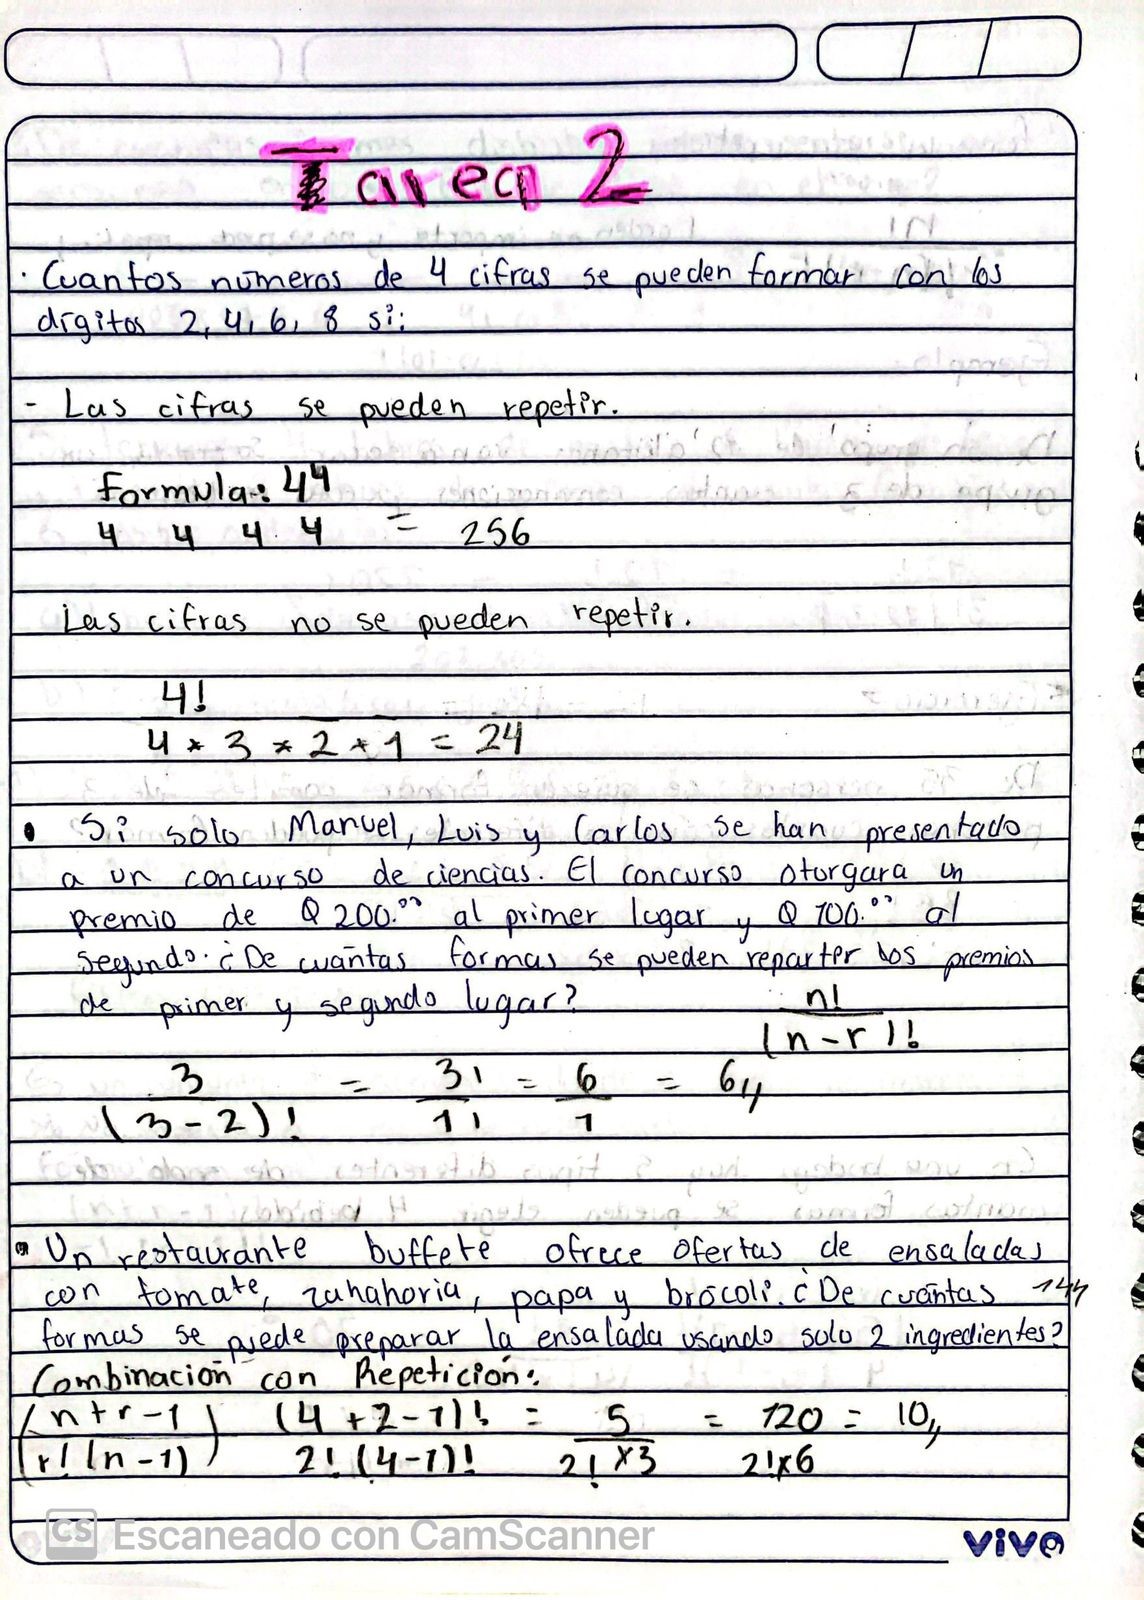 Tarea 2
· Cuantos números de 4 cifras se pueden formar con los
dígitos 2, 4, 6, 8 si:
- Las cifras se pueden repetir.
formula: 4⁴
4 4 4 4 = 256
Las cifras no se pueden repetir.
4!
4 * 3 * 2 * 1 = 24
• Si solo Manuel, Luis y Carlos se han presentado
a un concurso de ciencias. El concurso otorgara un
premio de Q 200.⁰⁰ al primer lugar y Q 100.⁰⁰ al
segundo. ¿De cuántas formas se pueden reparter los premios
de primer y segundo lugar?
n!
(n-r)!
3 = 3! = 6 = 6,,
(3-2)! 1! 1
• Un restaurante buffete ofrece ofertas de ensaladas
con tomate, zahahoria, papa y brócoli. ¿De cuántas 144
formas se puede preparar la ensalada usando solo 2 ingredientes?
Combinación con Repetición:
(n+r-1) (4+2-1)! = 5 = 120 = 10,,
(r!(n-1) 2!(4-1)! 2!x3 2!x6
CS Escaneado con CamScanner
vive